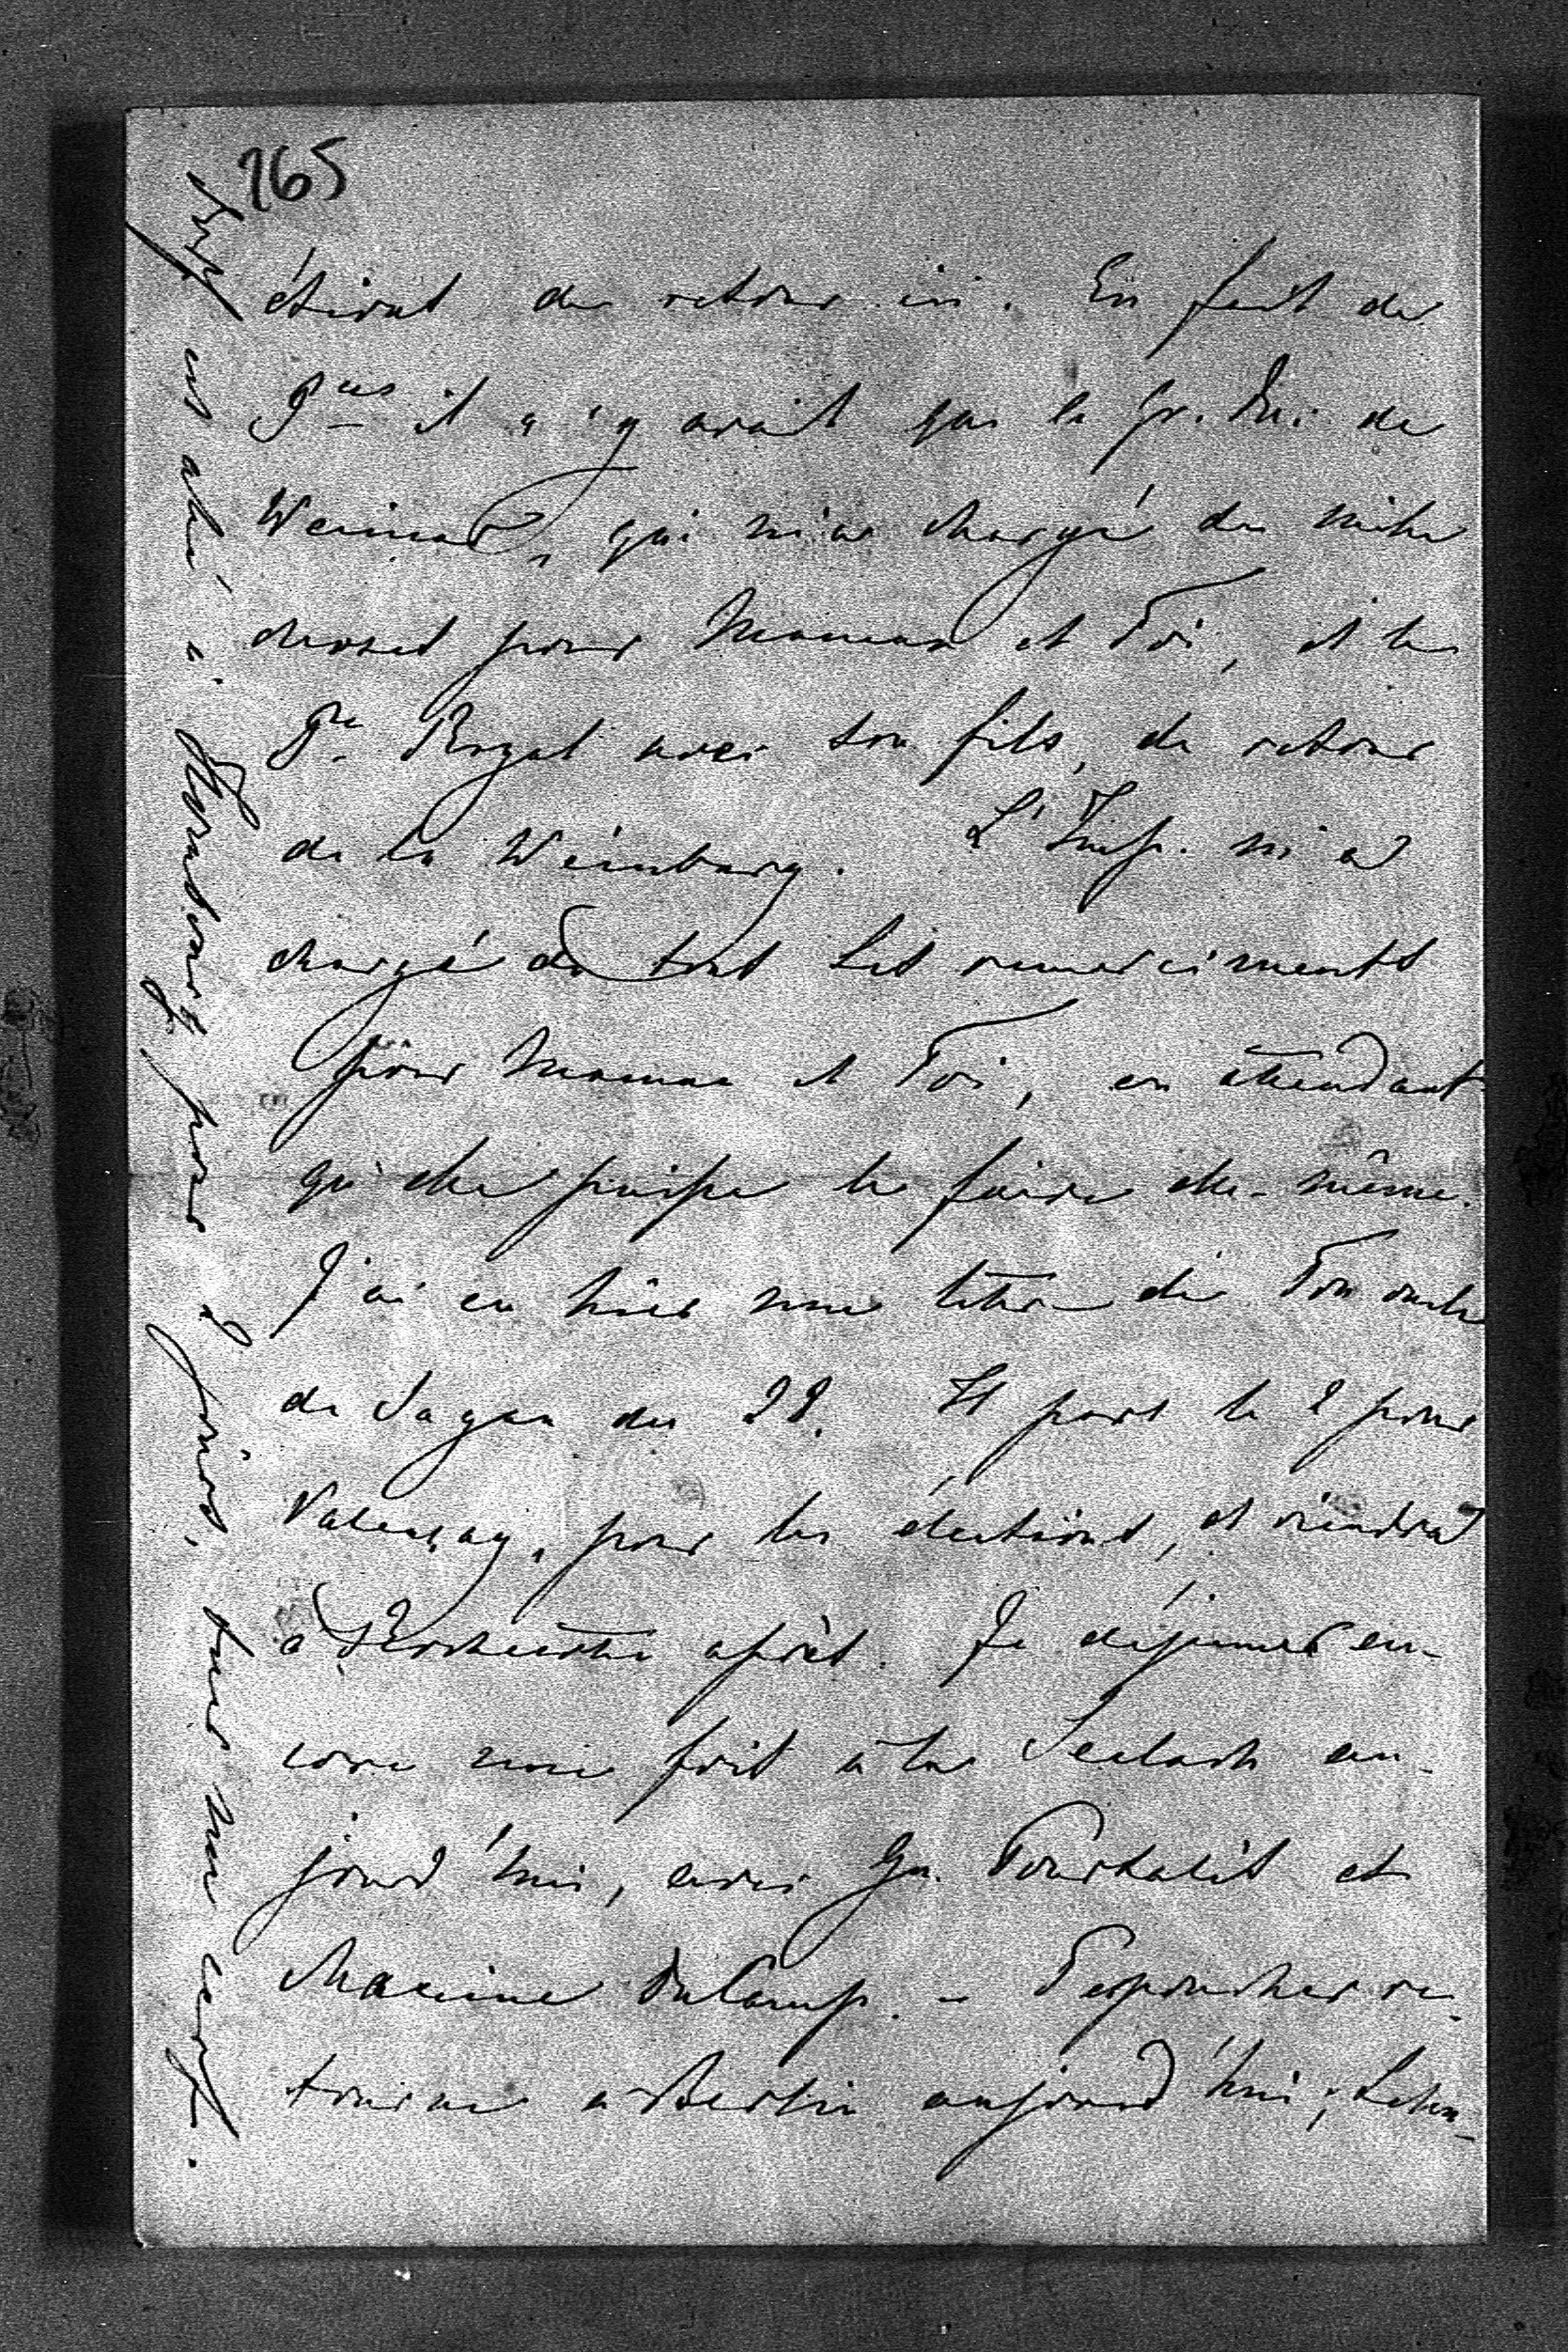 165
étions de retour ici. En fait de
Pces il n'y avait que le Gr. Duc de
Weimar, qui m'a chargé de mille
choses pour Maman et Toi, et le
Pce Royal avec son fils, de retour
de la Weinburg. L'Imp. m'a
chargé de tous ses remerciments
pour Maman et Toi, en attendant
qu'elle puisse le faire elle-même.
J'ai eu hier une lettre de Ton oncle
de Sagan du 28. Il part le 2 pour
Valençay, pour les élections, et viendra
à Rochecotte après. Je déjeuner en-
core une fois à la Seelach au-
jourd'hui, avec Pourtalès et
Maxime DuCamp. - Perponcher re-
tourne à Berlin aujourd'hui; Lehn-
est allé à pour 2 jours, tuer un cerf.